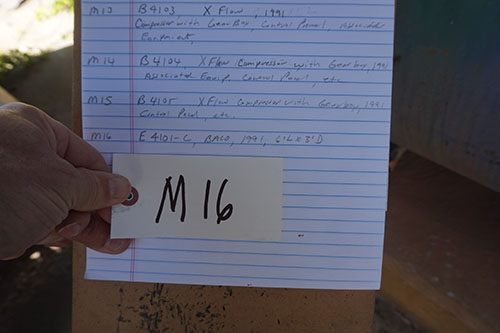 M13 B4103 X Flow, 1991
Compressor with Gear Box, Control Pannel, Associated
Equipment,
M14 B4104, X Flow Compressor with Gearbox, 1991
Associated Equip, Control Panel, etc
M15 B4105 X Flow Compressor with Gearbox, 1991
Control Panel, etc.
M16 E4101-C, BACO, 1991, 6'L x 3'D
M 16